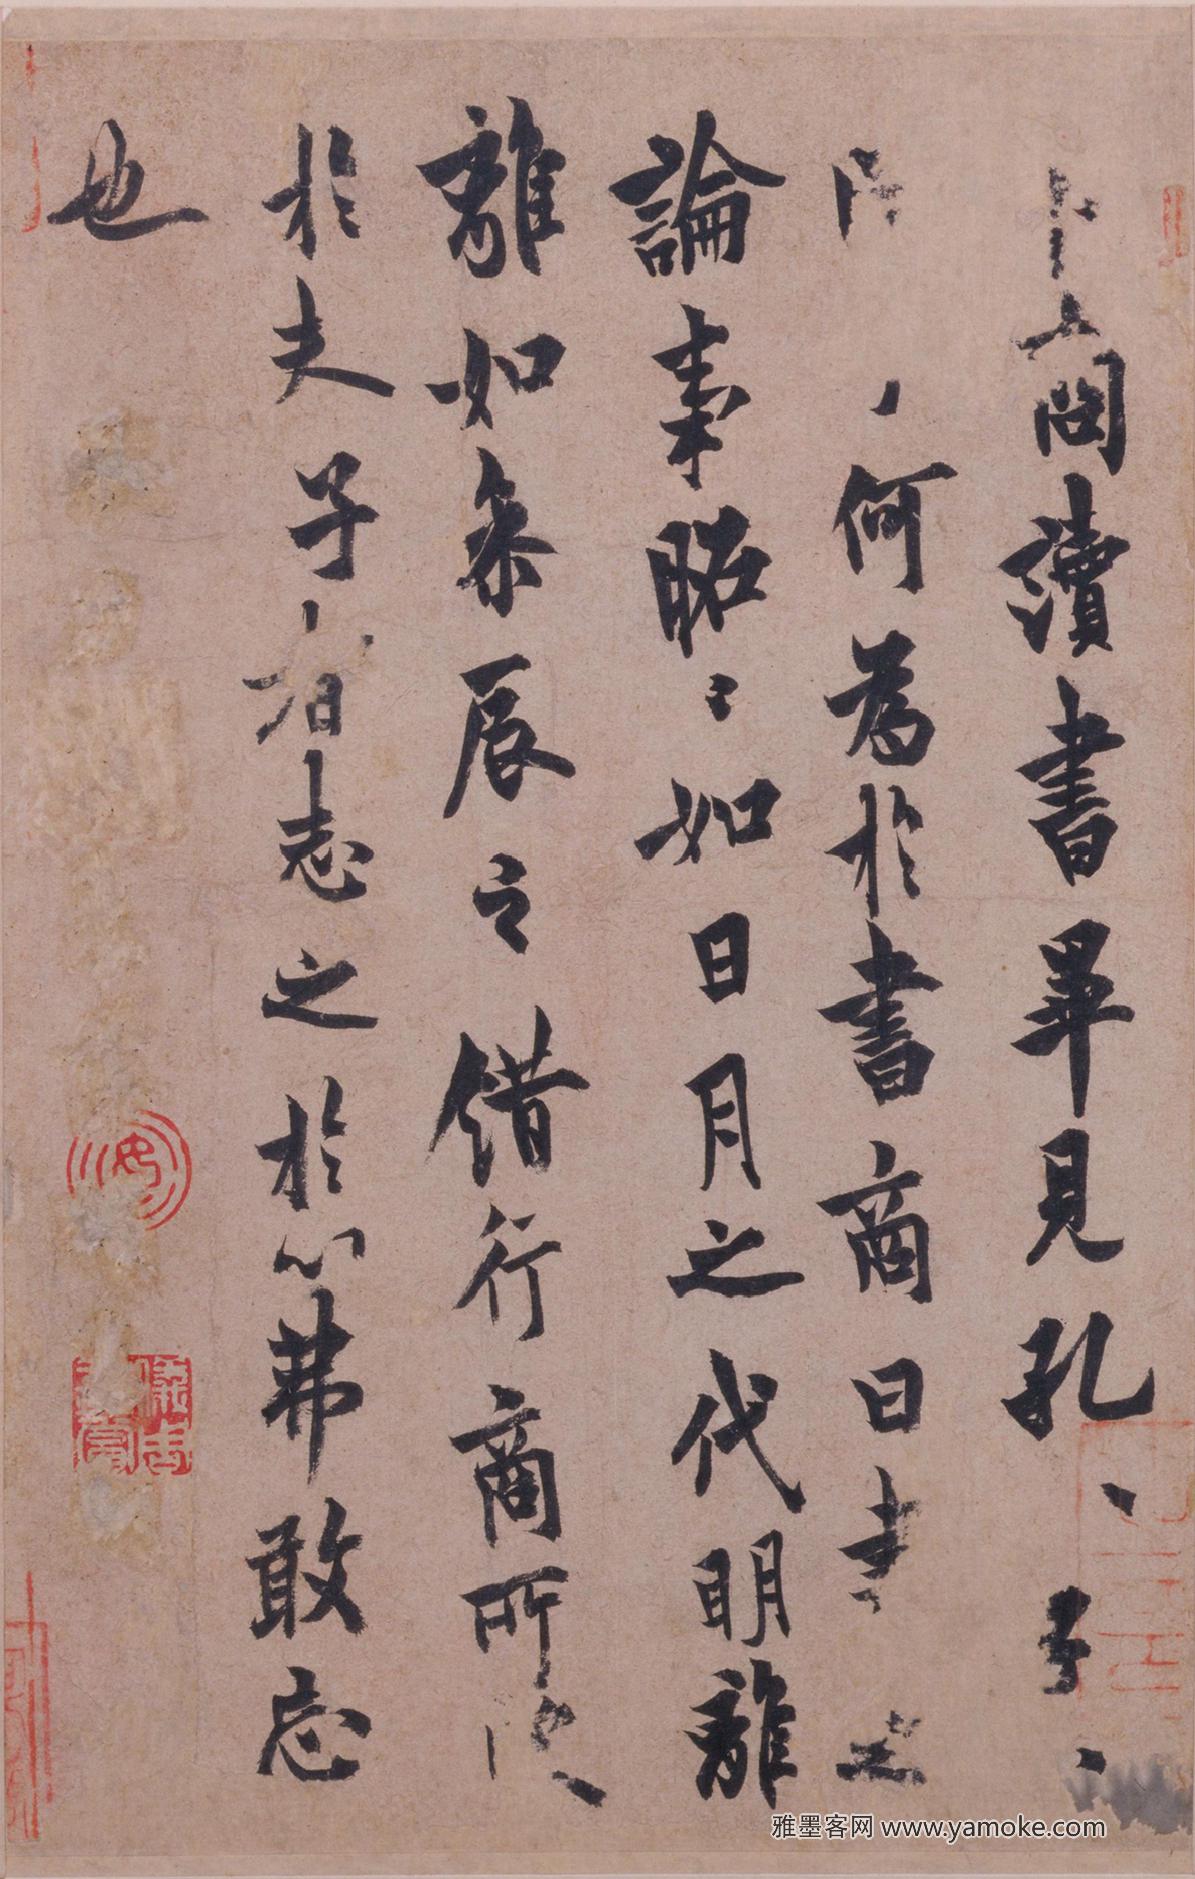 卜商問讀書畢見孔、子、
何為於書商曰書之
論事昭〻如日月之代明離
離如參辰之錯行商所受
於夫子者志之於心弗敢忘
也
雅墨客网 www.yamoke.com